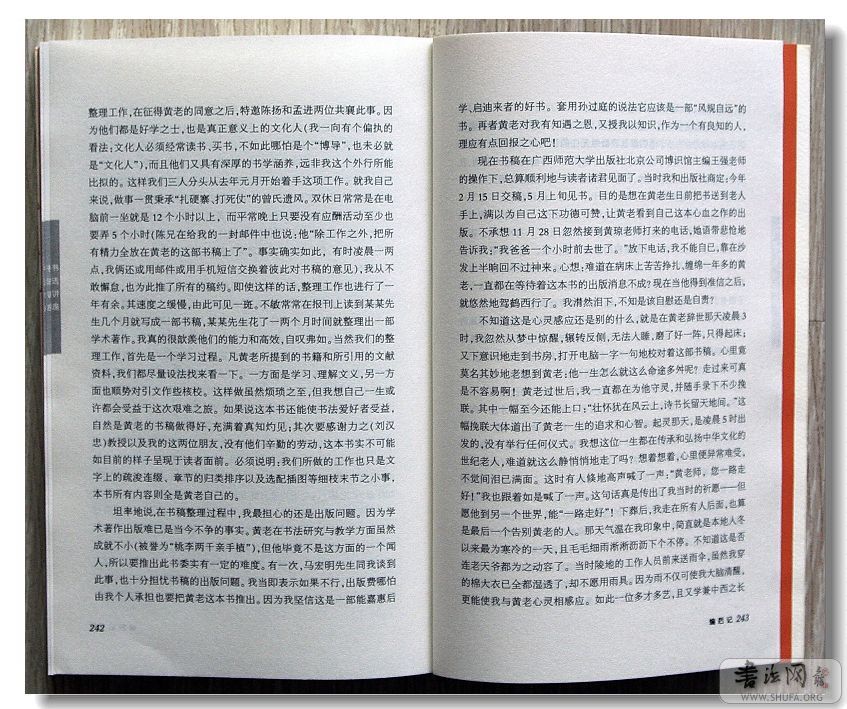 整理工作,在征得黄老的同意之后,特邀陈扬和孟进两位共襄此事。因
为他们都是好学之士,也是真正意义上的文化人(我一向有个偏执的
看法:文化人必须经常读书,买书,不如此哪怕是个“博导”,也未必就
是“文化人”),而且他们又具有深厚的书学涵养,远非我这个外行所能
比拟的。这样我们三人分头从去年元月开始着手这项工作。就我自己
来说,做事一贯秉承“扎硬寨、打死仗”的曾氏遗风。双休日常常是在电
脑前一坐就是12个小时以上,而平常晚上只要没有应酬活动至少也
要弄5个小时(陈兄在给我的一封邮件中也说:他“除工作之外,把所
有精力全放在黄老的这部书稿上了”。事实确实如此,有时凌晨一两
点,我俩还或用邮件或用手机短信交换着彼此对书稿的意见),我从不
敢懈怠,也为此推了所有的稿约。即使这样的话,整理工作也进行了一
年有余,其速度之缓慢,由此可见一斑。不敏常常在报刊上读到某某先
生几个月就写成一部书稿,某某先生花了一两个月时间就整理出一部
学术著作。我真的很歆羡他们的能力和高效,自叹弗如。当然我们的整
理工作,首先是一个学习过程。凡黄老所提到的书籍和所引用的文献
资料,我们都尽量设法找来看一下。一方面是学习、理解文义,另一方
面也顺势对引文作些核校。这样做虽然烦琐之至,但我想自己一生或
许都会受益于这次艰难之旅。如果说这本书还能使书法爱好者受益,
自然是黄老的书稿做得好,充满着真知灼见;其次要感谢力之(刘汉
忠)教授以及我的这两位朋友,没有他们辛勤的劳动,这本书实不可能
如目前的样子呈现于读者面前。必须说明:我们所做的工作也只是文
字上的疏浚连缀、章节的归类排序以及选配插图等细枝末节之小事,
本书所有内容则全是黄老自己的。
坦率地说,在书稿整理过程中,我最担心的还是出版问题。因为学
术著作出版难已是当今不争的事实。黄老在书法研究与教学方面虽然
成就不小(被誉为“桃李两千亲手植”),但他毕竟不是这方面的一个闻
人,所以要推出此书委实有一定的难度。有一次,马宏明先生同我谈到
此事,也十分担忧书稿的出版问题。我当即表示如果不行,出版费哪怕
由我个人承担也要把黄老这本书推出。因为我坚信这是一部能嘉惠后
242
学、启迪来者的好书。套用孙过庭的说法它应该是一部“风规自远”的
书。再者黄老对我有知遇之恩,又授我以知识,作为一个有良知的人,
理应有点回报之心吧!
现在书稿在广西师范大学出版社北京公司博识馆主编王强老师
的操作下,总算顺利地与读者诸君见面了。当时我和出版社商定:今年
2月15日交稿,5月上旬见书。目的是想在黄老生日前把书送到老人
手上,满以为自己这下功德可赞,让黄老看到自己这本心血之作的出
版。不承想11月28日忽然接到黄琼老师打来的电话,她语带悲怆地
告诉我:“我爸爸一个小时前去世了。”放下电话,我不能自已,靠在沙
发上半晌回不过神来。心想:难道在病床上苦苦挣扎、缠绵一年多的黄
老,一直都在等待着这本书的出版消息不成?现在当他得到准信之后,
就悠然地驾鹤西行了。我潸然泪下,不知是该自慰还是自责?
不知道这是心灵感应还是别的什么,就是在黄老辞世那天凌晨3
时,我忽然从梦中惊醒,辗转反侧,无法入睡,磨了好一阵,只得起床;
又下意识地走到书房,打开电脑一字一句地校对着这部书稿。心里竟
莫名其妙地老想到黄老:他一生怎么就这么命途多舛呢?走过来可真
是不容易啊!黄老过世后,我一直都在为他守灵,并随手录下不少挽
联。其中一幅至今还能上口:“壮怀犹在风云上,诗书长留天地间。”这
幅挽联大体道出了黄老一生的追求和心智。起灵那天,是凌晨5时出
发的,没有举行任何仪式。我想这位一生都在传承和弘扬中华文化的
世纪老人,难道就这么静悄悄地走了吗?想着想着,心里便异常难受,
不觉间泪已满面。这时有人倏地高声喊了一声:“黄老师,您一路走
好!”我也跟着如是喊了一声。这句话真是传出了我当时的祈愿——但
愿他到另一个世界,能“一路走好”!下葬后,我走在所有人后面,也算
是最后一个告别黄老的人。那天气温在我印象中,简直就是本地入冬
以来最为寒冷的一天,且毛毛细雨淅淅沥沥下个不停。不知道这是否
连老天爷都为之动容了。当时陵地的工作人员前来送雨伞,虽然我穿
的棉大衣已全都湿透了,却不愿用雨具。因为雨不仅可使我大脑清醒,
更能使我与黄老心灵相感应。如此一位多才多艺,且又学兼中西之长
编后记 243
书法网
WWW.SHUFA.ORG